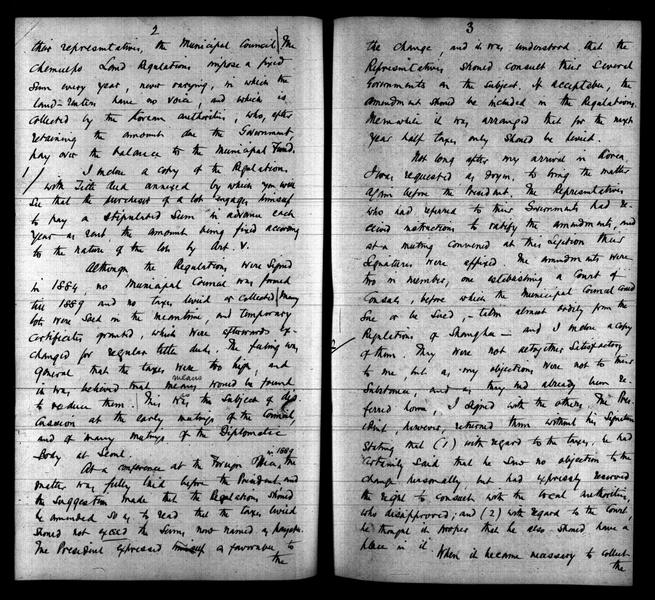 2
their representatives, the Municipal Council / The
Chemulpo Land Regulations impose a fixed
sum every year, never varying, in which the
land-renters have no voice, and which is
collected by the Korean authorities, who, after
retaining the amount due the Government,
pay over the balance to the Municipal Fund.
1/ I enclose a copy of the Regulations
with Title deed annexed by which you will
see that the purchaser of a lot engages himself
to pay a stipulated sum in advance each
year as rent, the amount being fixed according
to the nature of the lot by Art. V.
Although the Regulations were signed
in 1884 no Municipal Council was formed
till 1889 and no taxes levied or collected / Many
lots were sold in the meantime, and temporary
certificates granted, which were afterwards ex-
changed for regular title deeds. The feeling was
general that the taxes were too high, and
it was believed that means would be found
means
to reduce them. This was the subject of dis-
cussion at the early meetings of the Council,
and of many meetings of the Diplomatic
Body at Seoul.
in 1889
At a conference at the Foreign Office, the
matter was fully laid before the President and
the suggestion made that the Regulations should
be amended so as to read that the taxes levied
should not exceed the sums now named as payable.
The President expressed himself as favorable to
the
3
the change, and it was understood that the
Representatives should consult their several
Governments on the subject. If acceptable, the
amendment should be included in the Regulations.
Meanwhile it was arranged that for the next
year half taxes only should be levied.
Not long after my arrival in Korea,
I was requested as doyen, to bring the matter
again before the President. The Representatives
who had referred to their Governments had re-
ceived instructions to ratify the amendments, and
at a meeting convened at this Legation their
signatures were affixed. The amendments were
two in number, one establishing a Court of
Consuls, before which the Municipal Council could
sue or be sued, – taken almost bodily from the
2/ Regulations of Shanghai – and I enclose a copy
of them. They were not altogether satisfactory
to me but as my objections were not to their
substance, and as they had already been re-
ferred home, I signed with the others. The Pre-
sident, however, returned them without his signature
stating that (1) with regard to the taxes, he had
certainly said that he saw no objection to the
change personally, but had expressly reserved
the right to consult with the local authorities,
who disapproved; and (2) with regard to the Court,
he thought it proper that he also should have a
place in it.
When it became necessary to collect
the